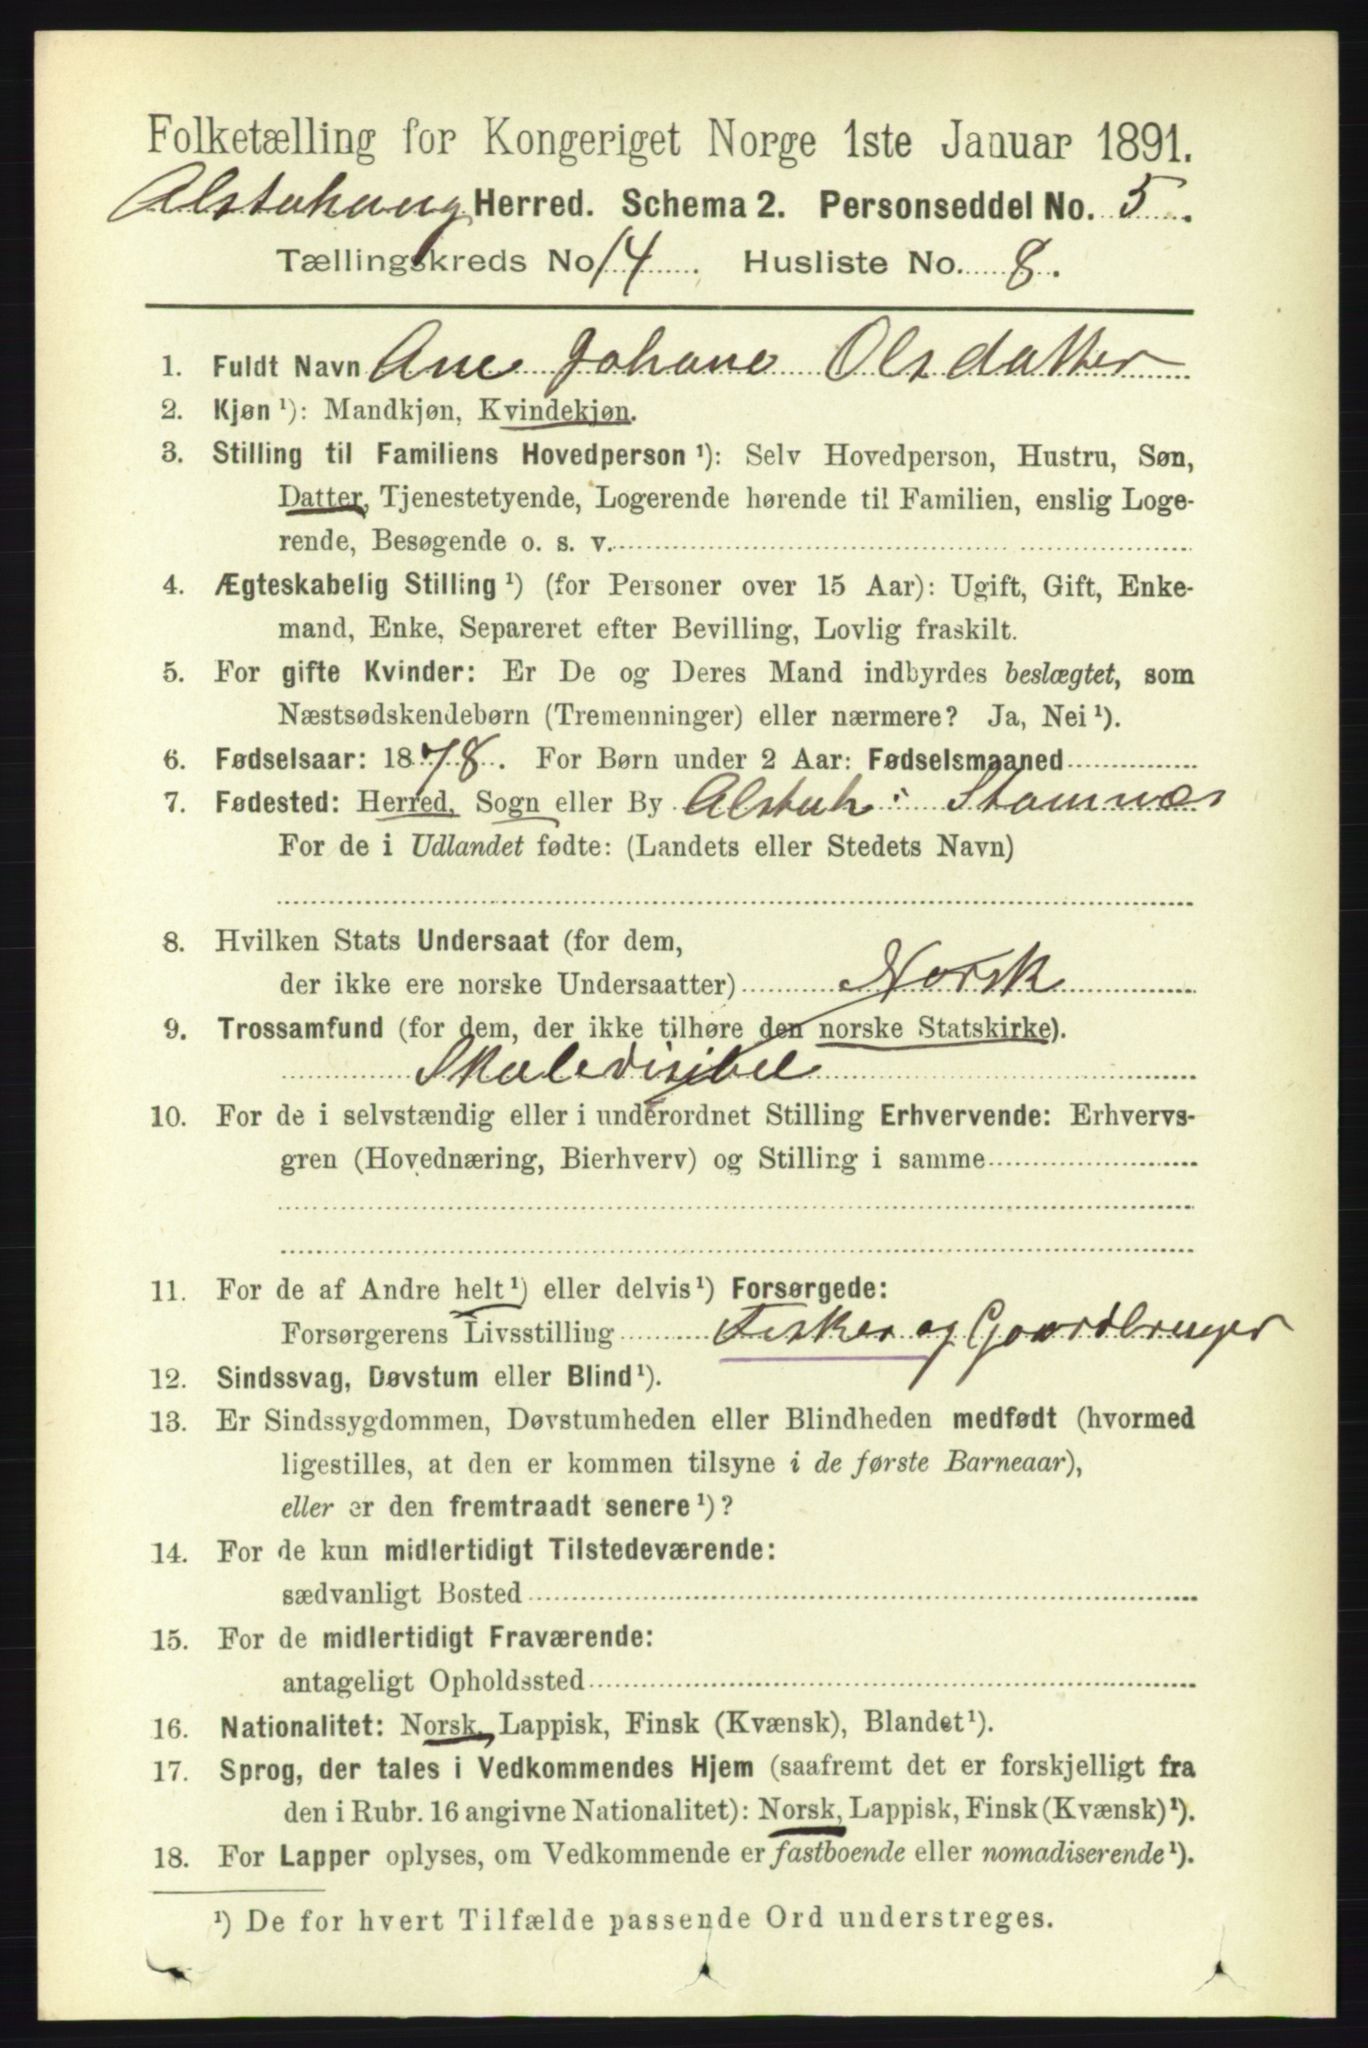 Folketælling for Kongeriget Norge 1ste Januar 1891.
Alstahaug Herred. Schema 2. Personseddel No. 5.
Tællingskreds No 14. Husliste No. 8.
1. Fuldt Navn Ane Johane Olsdatter
2. Kjøn ¹): Mandkjøn, Kvindekjøn.
3. Stilling til Familiens Hovedperson ¹): Selv Hovedperson, Hustru, Søn,
Datter, Tjenestetyende, Logerende hørende til Familien, enslig Loge-
rende, Besøgende o. s. v.
4. Ægteskabelig Stilling ¹) (for Personer over 15 Aar): Ugift, Gift, Enke-
mand, Enke, Separeret efter Bevilling, Lovlig fraskilt.
5. For gifte Kvinder: Er De og Deres Mand indbyrdes beslægtet, som
Næstsødskendebørn (Tremenninger) eller nærmere? Ja, Nei ¹).
6. Fødselsaar: 1878. For Børn under 2 Aar: Fødselsmaaned
7. Fødested: Herred, Sogn eller By Alstah: Stamnæs
For de i Udlandet fødte: (Landets eller Stedets Navn)
8. Hvilken Stats Undersaat (for dem,
der ikke ere norske Undersaatter) Norsk
9. Trossamfund (for dem, der ikke tilhøre den norske Statskirke).
10. For de i selvstændig eller i underordnet Stilling Erhvervende: Erhvervs-
gren (Hovednæring, Bierhverv) og Stilling i samme
11. For de af Andre helt ¹) eller delvis ¹) Forsørgede:
Forsørgerens Livsstilling Fisker og Gaardbruger
12. Sindssvag, Døvstum eller Blind ¹).
13. Er Sindssygdommen, Døvstumheden eller Blindheden medfødt (hvormed
ligestilles, at den er kommen tilsyne i de første Barneaar),
eller er den fremtraadt senere ¹)?
14. For de kun midlertidigt Tilstedeværende:
sædvanligt Bosted
15. For de midlertidigt Fraværende:
antageligt Opholdssted
16. Nationalitet: Norsk, Lappisk, Finsk (Kvænsk), Blandet ¹).
17. Sprog, der tales i Vedkommendes Hjem (saafremt det er forskjelligt fra
den i Rubr. 16 angivne Nationalitet): Norsk, Lappisk, Finsk (Kvænsk) ¹).
18. For Lapper oplyses, om Vedkommende er fastboende eller nomadiserende ¹).
¹) De for hvert Tilfælde passende Ord understreges.